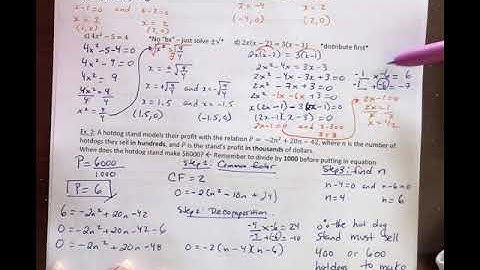 x-1=0 and x-3=0
x=1 x=3
(1,0)
x=-4 x=2
(-4,0) (2,0)
c) 4x² - 5 = 4
*No "bx" – just solve ±√*
d) 2x(x - 2) = 3(x - 1) *distribute first*
4x²-5-4=0
4x²-9=0
4x²=9
4x²/4 = 9/4
x²=9/4
√x²=√9/4
x=±√9/4
x=1.5 and x=-1.5
(1.5,0) (-1.5,0)
2x(x-2)=3(x-1)
2x²-4x=3x-3
2x²-4x-3x+3=0
2x²-7x+3=0
2x²-1x-6x+3=0
x(2x-1)-3(2x-1)=0
(2x-1)(x-3)=0
-1 x -6 = 6
-1 + (-6) = -7
2x-1=0
2x=1
x=1/2
and x-3=0
x=3
Ex. 2: A hotdog stand models their profit with the relation P = -2n² + 20n - 42, where n is the number of
hotdogs they sell in hundreds, and P is the stand's profit in thousands of dollars.
When does the hotdog stand make $6000? ← Remember to divide by 1000 before putting in equation
P=6000/1000
P=6
6=-2n²+20n-42
0=-2n²+20n-42-6
0=-2n²+20n-48
Step 1: Common factor
CF=2
0=-2(n²-10n+24)
Step 2: Decomposition
-4 x -6 = 24
-4 + (-6) = -10
0=-2(n-4)(n-6)
Step 3: find n
n-4=0 and n-6=0
n=4 n=6
∴ the hot dog
stand must sell
400 or 600
hotdogs to make